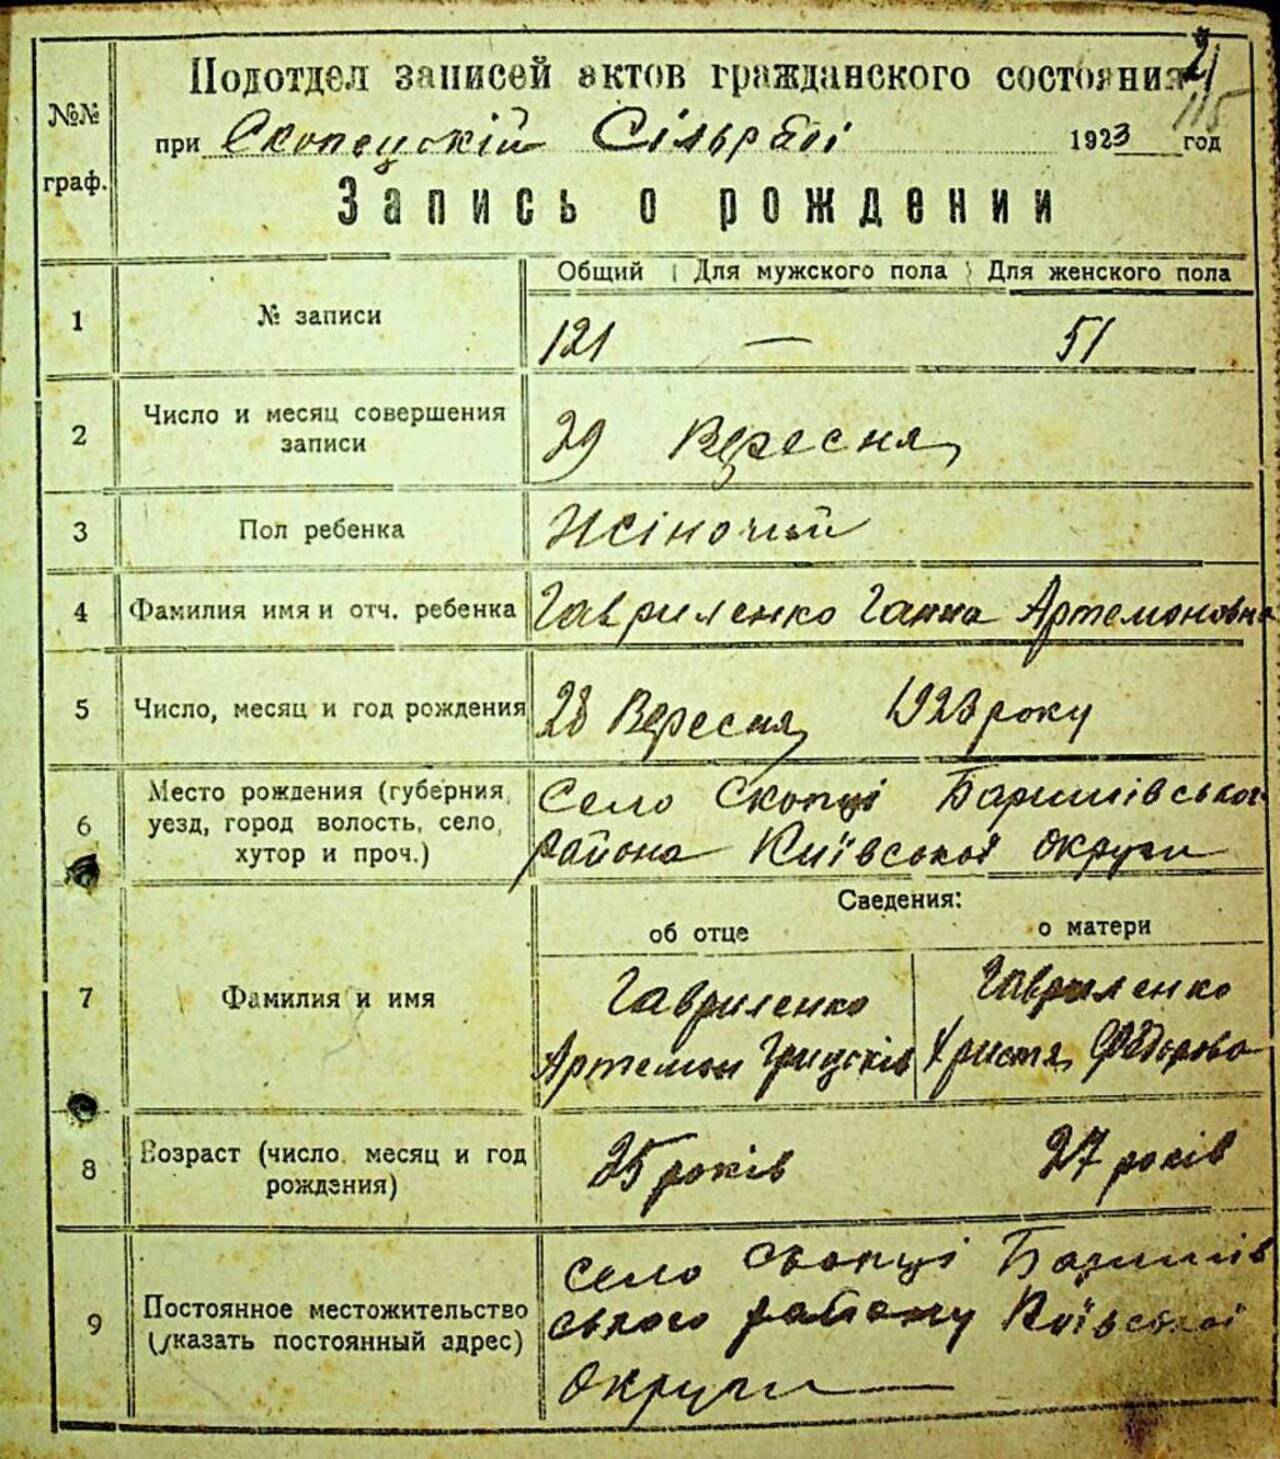 Подотдел записей актов гражданского состояния
№№ граф.
при Скопецкій Сільраді 1923 год
115
Запись о рождении
Общий Для мужского пола Для женского пола
1 № записи 121 — 51
2 Число и месяц совершения записи 29 Вересня
3 Пол ребенка Жіночий
4 Фамилия имя и отч. ребенка Гавриленко Ганна Артемоновна
5 Число, месяц и год рождения 28 Вересня 1923 року
6 Место рождения (губерния, уезд, город волость, село, хутор и проч.)
Село Скопці Баришівського
района Київської округи
Сведения:
об отце о матери
7 Фамилия и имя
Гавриленко Гавриленко
Артемон Грицьків Христя Фёдорова
8 Возраст (число, месяц и год рождения) 25 років 27 років
9 Постоянное местожительство (указать постоянный адрес)
Село Скопці Баришів
ського району Київської
Округи